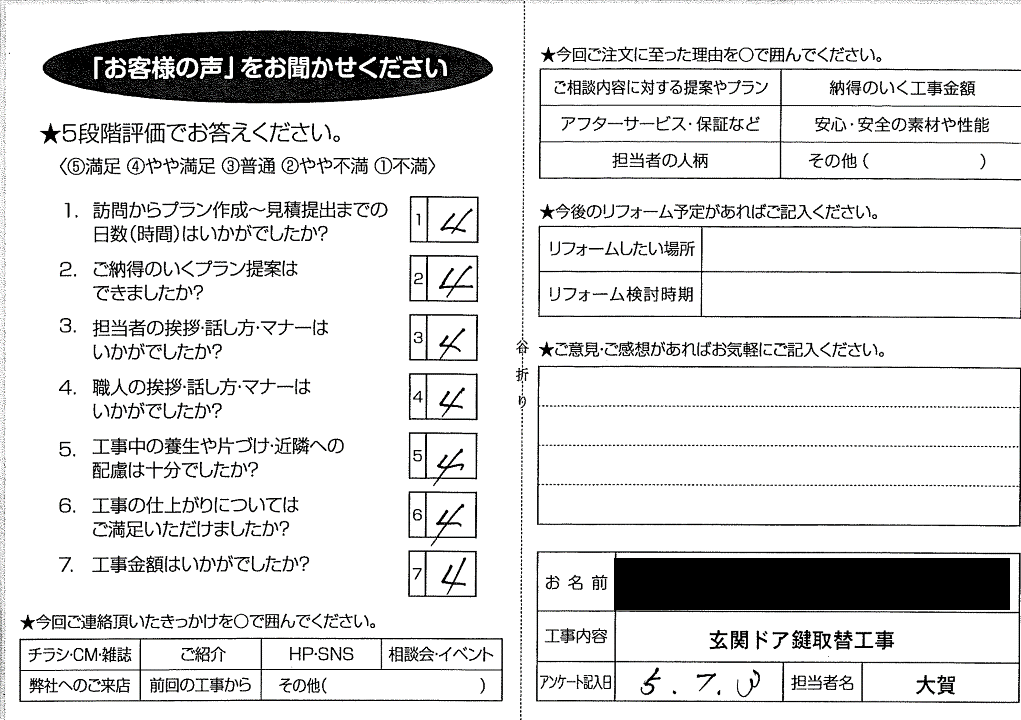 「お客様の声」をお聞かせください
★5段階評価でお答えください。
〈⑤満足 ④やや満足 ③普通 ②やや不満 ①不満〉
1. 訪問からプラン作成～見積提出までの
日数(時間)はいかがでしたか?
1 4
2. ご納得のいくプラン提案は
できましたか?
2 4
3. 担当者の挨拶・話し方・マナーは
いかがでしたか?
3 4
4. 職人の挨拶・話し方・マナーは
いかがでしたか?
4 4
5. 工事中の養生や片づけ・近隣への
配慮は十分でしたか?
5 4
6. 工事の仕上がりについては
ご満足いただけましたか?
6 4
7. 工事金額はいかがでしたか?
7 4
★今回ご連絡頂いたきっかけを○で囲んでください。
チラシ・CM・雑誌 ご紹介 HP・SNS 相談会・イベント
弊社へのご来店 前回の工事から その他( )
谷折り
★今回ご注文に至った理由を○で囲んでください。
ご相談内容に対する提案やプラン 納得のいく工事金額
アフターサービス・保証など 安心・安全の素材や性能
担当者の人柄 その他( )
★今後のリフォーム予定があればご記入ください。
リフォームしたい場所
リフォーム検討時期
★ご意見・ご感想があればお気軽にご記入ください。
お名前
工事内容 玄関ドア鍵取替工事
アンケート記入日 5.7. 担当者名 大賀